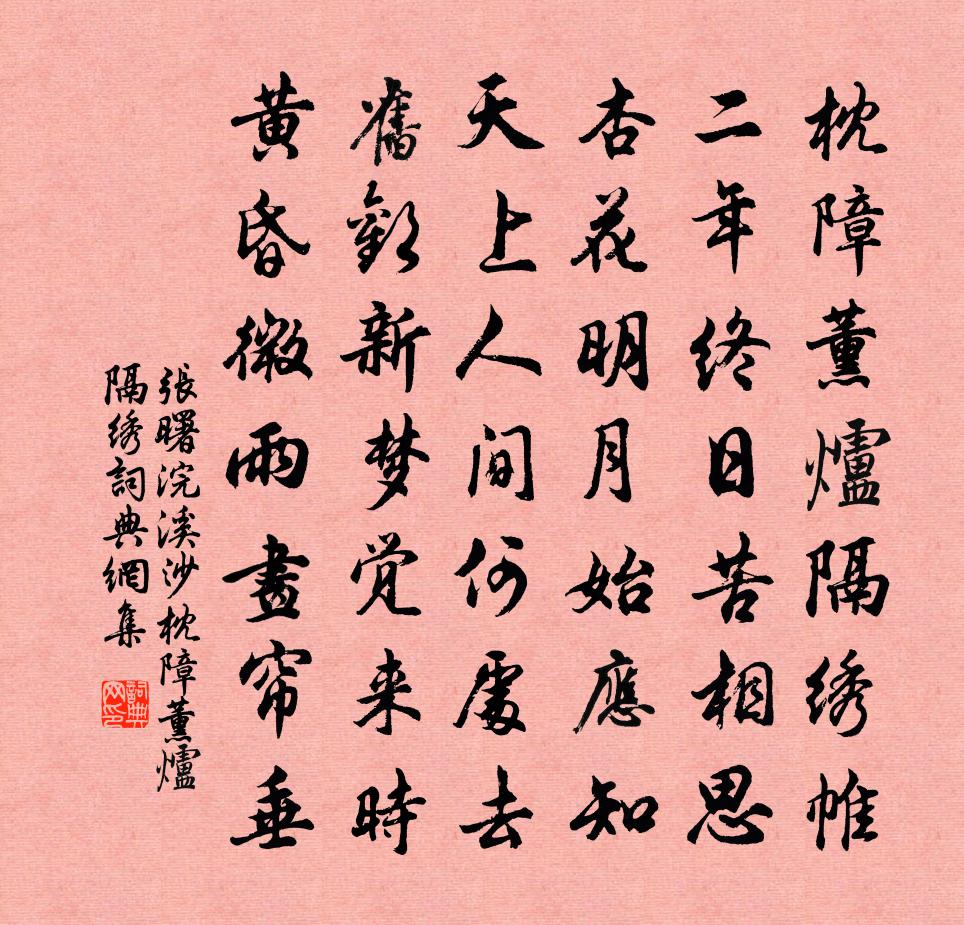 枕障薰爐隔綉帷
二年終日苦相思
杏花明月始應知
天上人间何處去
舊歡新梦觉来時
黄昏微雨畫帘垂
張曙浣溪沙枕障薰爐
隔綉詞典網集
詞典网印